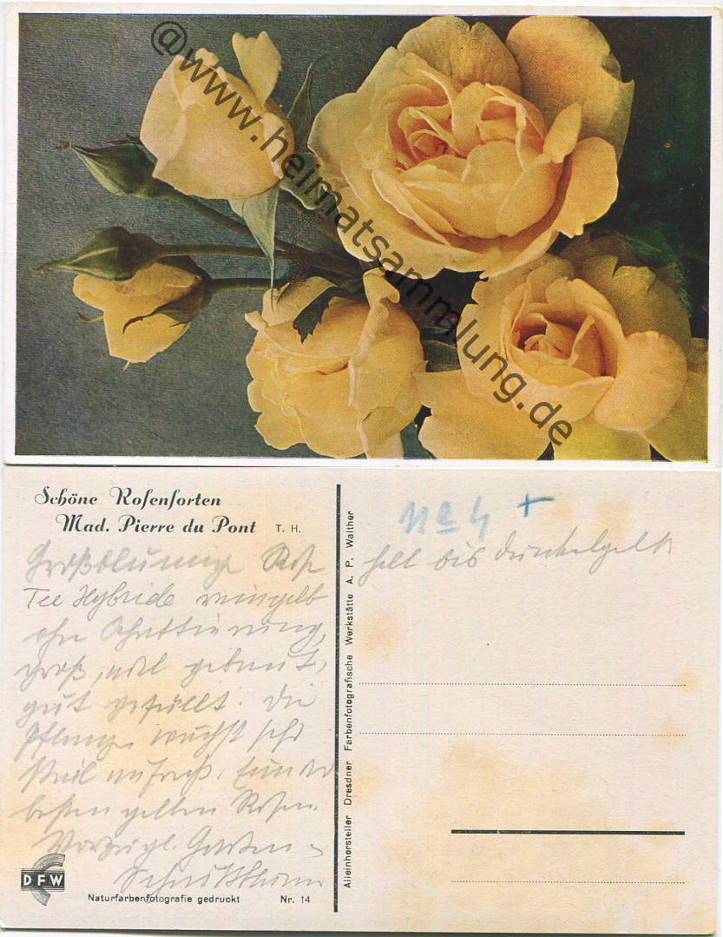 @www.heimatsammlung.de
Schöne Rosensorten
Mad. Pierre du Pont T. H.
Großblumige Rose
Tee Hybride reingelb
ohne Schattierung,
groß, edel gebaut,
gut gefüllt. Die
Pflanze wächst sehr
steil aufrecht. Eine der
besten gelben Rosen.
Vorzügl. Garten u
Schnittblume
DFW
Naturfarbenfotografie gedruckt Nr. 14
Alleinhersteller Dresdner Farbenfotografische Werkstätte A. P. Walther
No 4 +
hell bis dunkelgelb